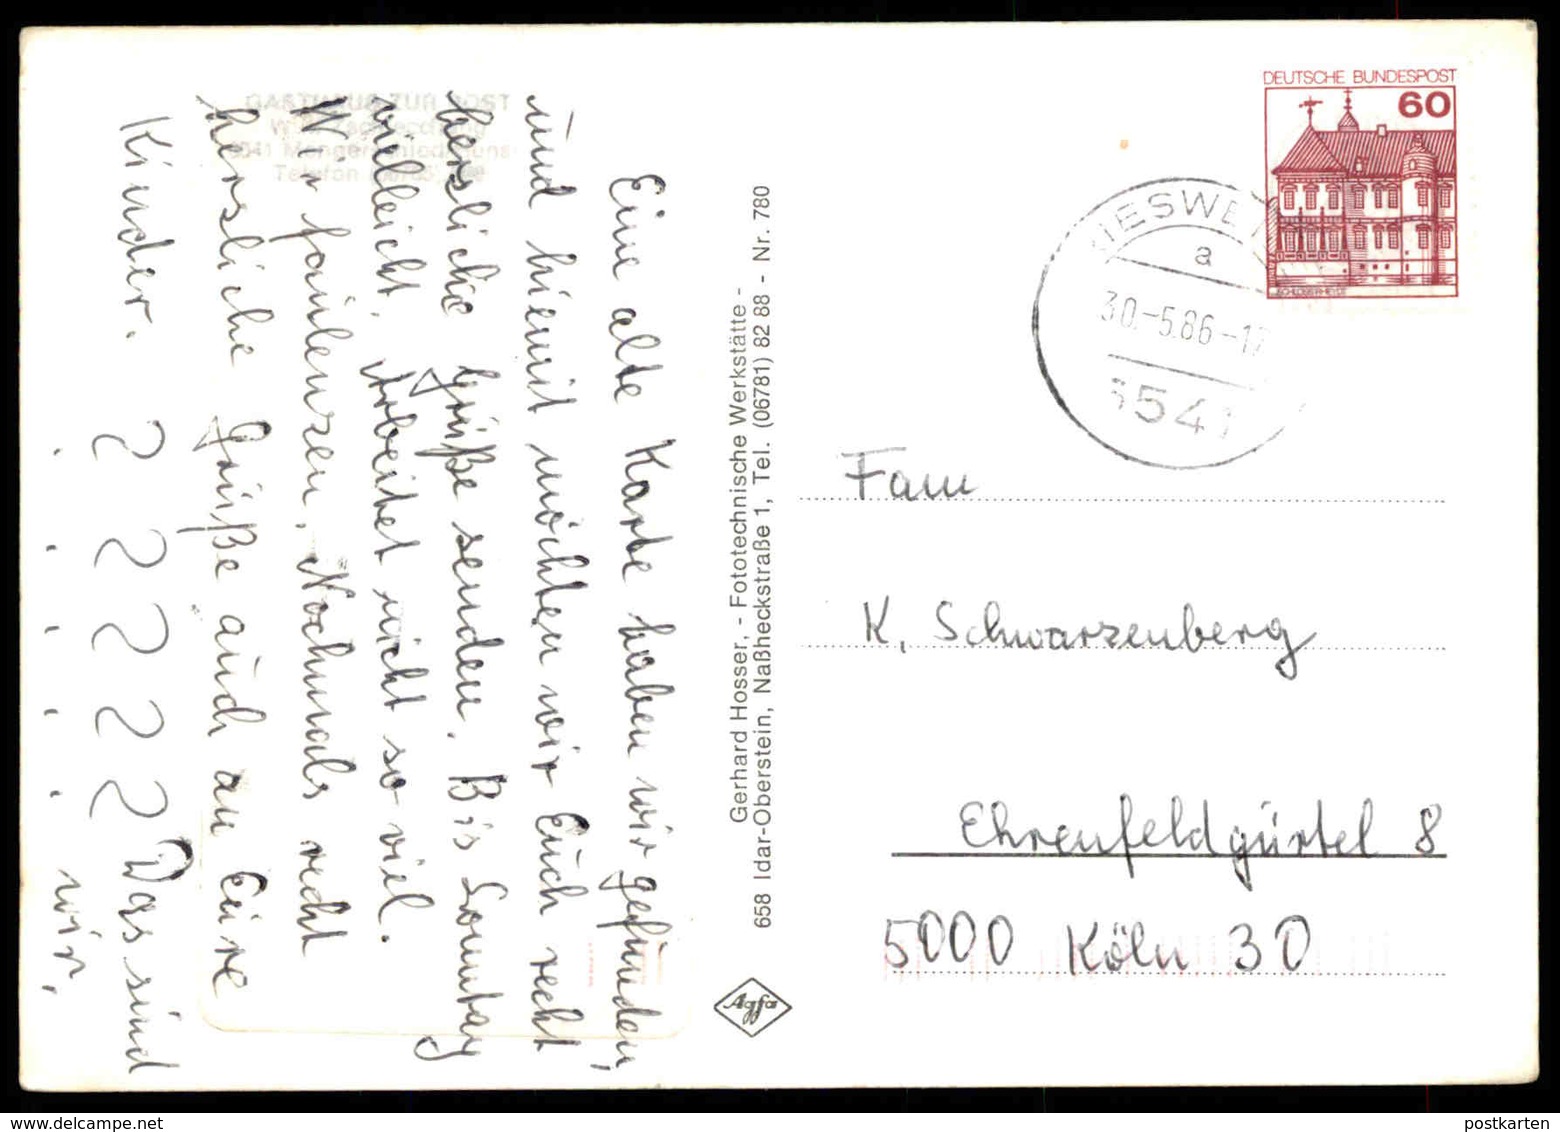 GASTHAUS ZUR POST
Telefon
Eine alte Karte haben wir gefunden,
und hiermit möchten wir Euch recht
herzliche Grüße senden. Bis Sonntag
villeicht. Arbeitet nicht so viel.
Wir faulenzen. Nochmals recht
herzliche Grüße auch an Eure
Kinder. 2 2 2 2 2 Das sind
. . . . . wir.
Gerhard Hosser, - Fototechnische Werkstätte -
658 Idar-Oberstein, Naßheckstraße 1, Tel. (06781) 82 88 - Nr. 780
Agfa
DEUTSCHE BUNDESPOST
60
SCHLOSS RHEYDT
a
30.-5.86-17
6541
Fam
K. Schwarzenberg
Ehrenfeldgürtel 8
5000 Köln 30
postkarten